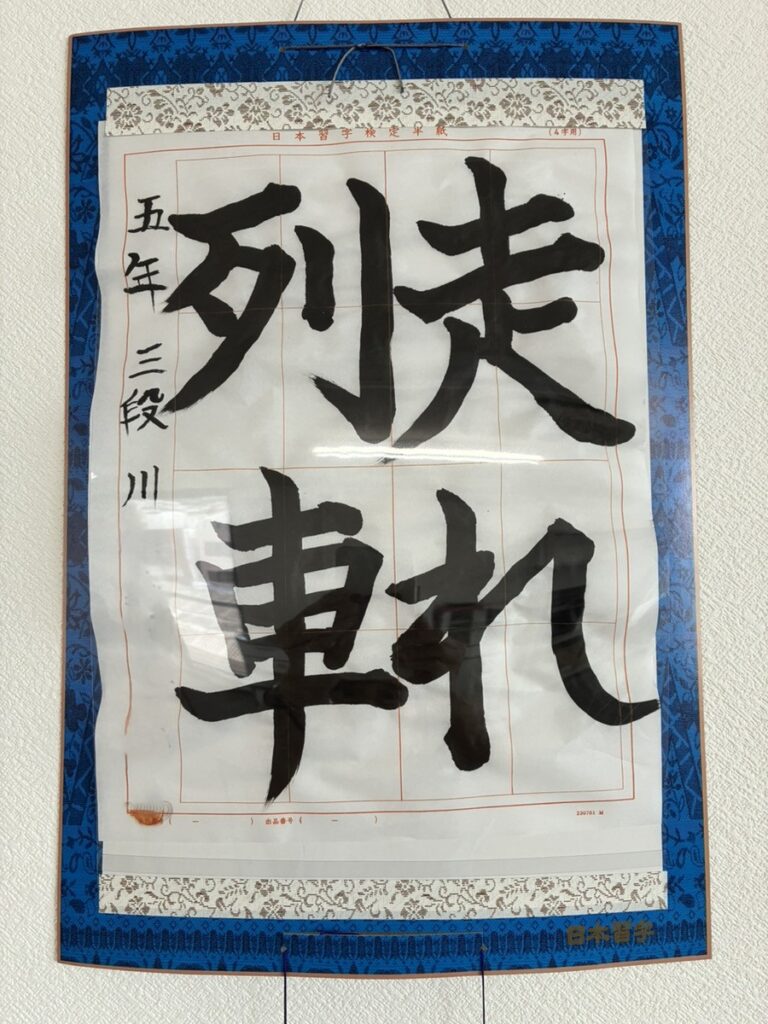 日本習字検定半紙
(4字用)
走れ
列車
五年 三段 川
( ー ) 出品番号 ( ー )
230701 M
日本習字